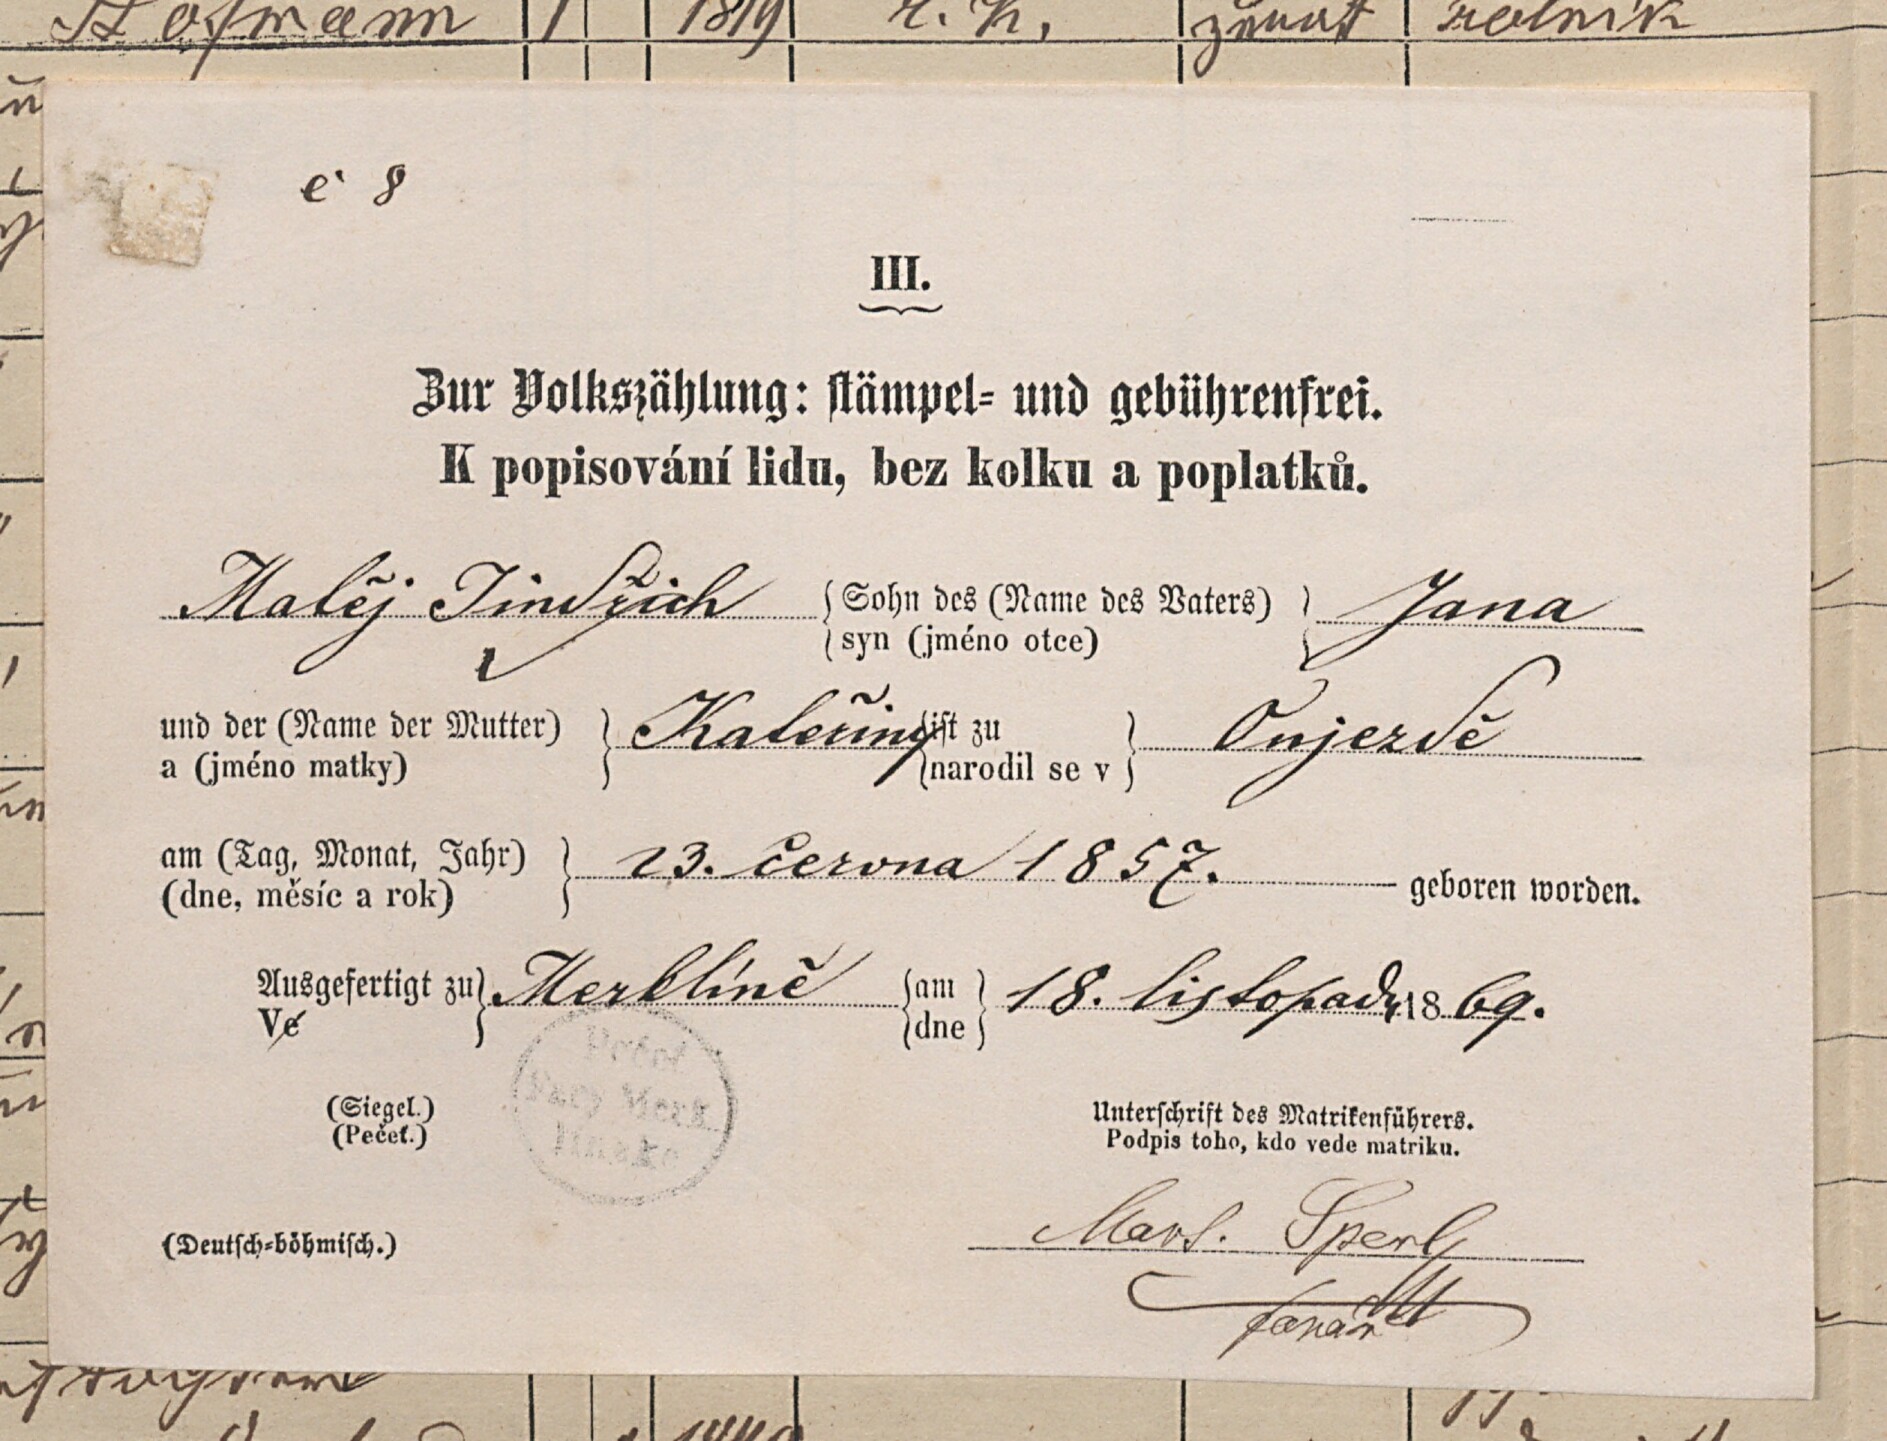 Hofmann 1 1819 ř. k. ženat rolník
č 8
III.
Zur Volkszählung: stämpel- und gebührenfrei.
K popisování lidu, bez kolku a poplatků.
Matěj Jindřich { Sohn des (Name des Vaters) } Jana
syn (jméno otce)
und der (Name der Mutter) } Kateřiny { ist zu } Önjezdě
a (jméno matky) narodil se v
am (Tag, Monat, Jahr) } 23. června 1857. geboren worden.
(dne, měsíc a rok)
Ausgefertigt zu } Merklíně { am } 18. listopadu 1869.
Ve dne
Pečeť
Fary Merk-
línské
(Siegel.)
(Pečeť.)
Unterschrift des Matrikenführers.
Podpis toho, kdo vede matriku.
Sperl
farář
(Deutsch-böhmisch.)